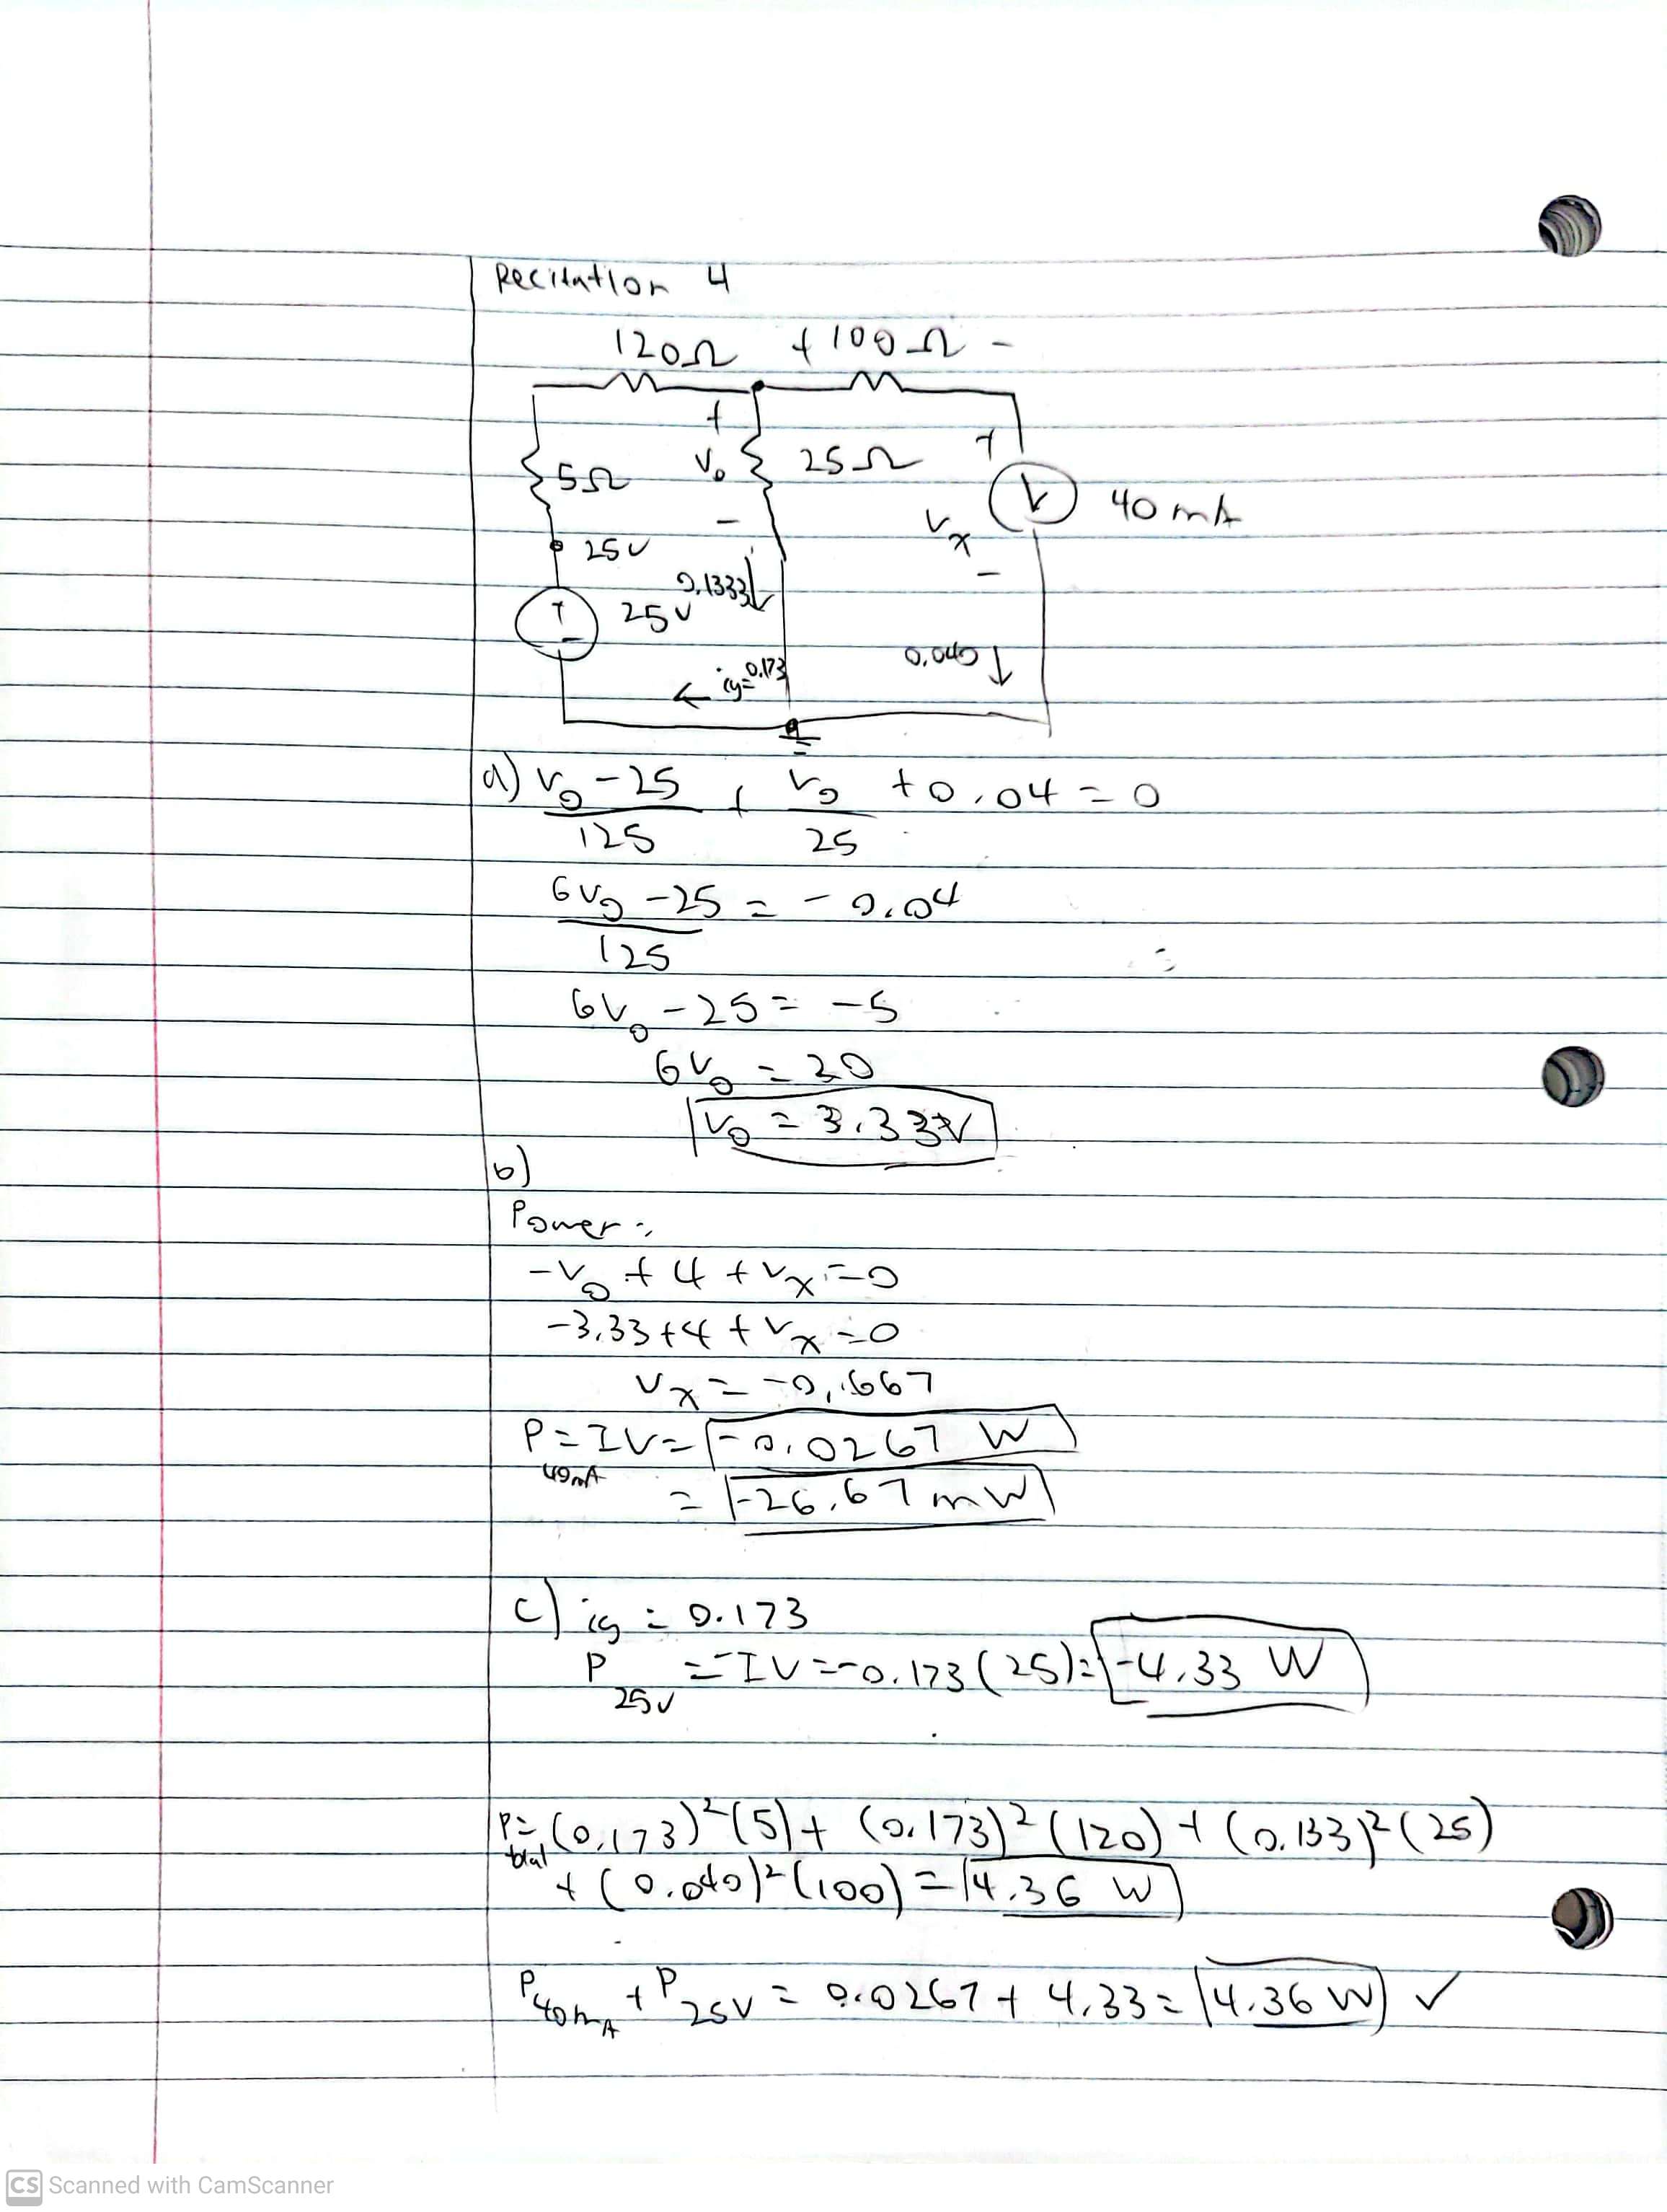 Recitation 4
120Ω + 100Ω -
+
5Ω Vo 25Ω +
- Vx 40 mA
25V -
0.1333 ↓
+ 25V
-
← ig=0.173 0.040 ↓
a) Vo - 25 / 125 + Vo / 25 + 0.04 = 0
6Vo - 25 / 125 = - 0.04
6Vo - 25 = -5
6Vo = 20
Vo = 3.33V
b)
Power:
-Vo + 4 + Vx = 0
-3.33 + 4 + Vx = 0
Vx = -0.667
P40mA = IV = -0.0267 W
= -26.67 mW
c) ig = 0.173
P25V = -IV = -0.173(25) = -4.33 W
Ptotal = (0.173)²(5) + (0.173)²(120) + (0.133)²(25)
+ (0.040)²(100) = 4.36 W
P40mA + P25V = 0.0267 + 4.33 = 4.36 W ✓
CS Scanned with CamScanner